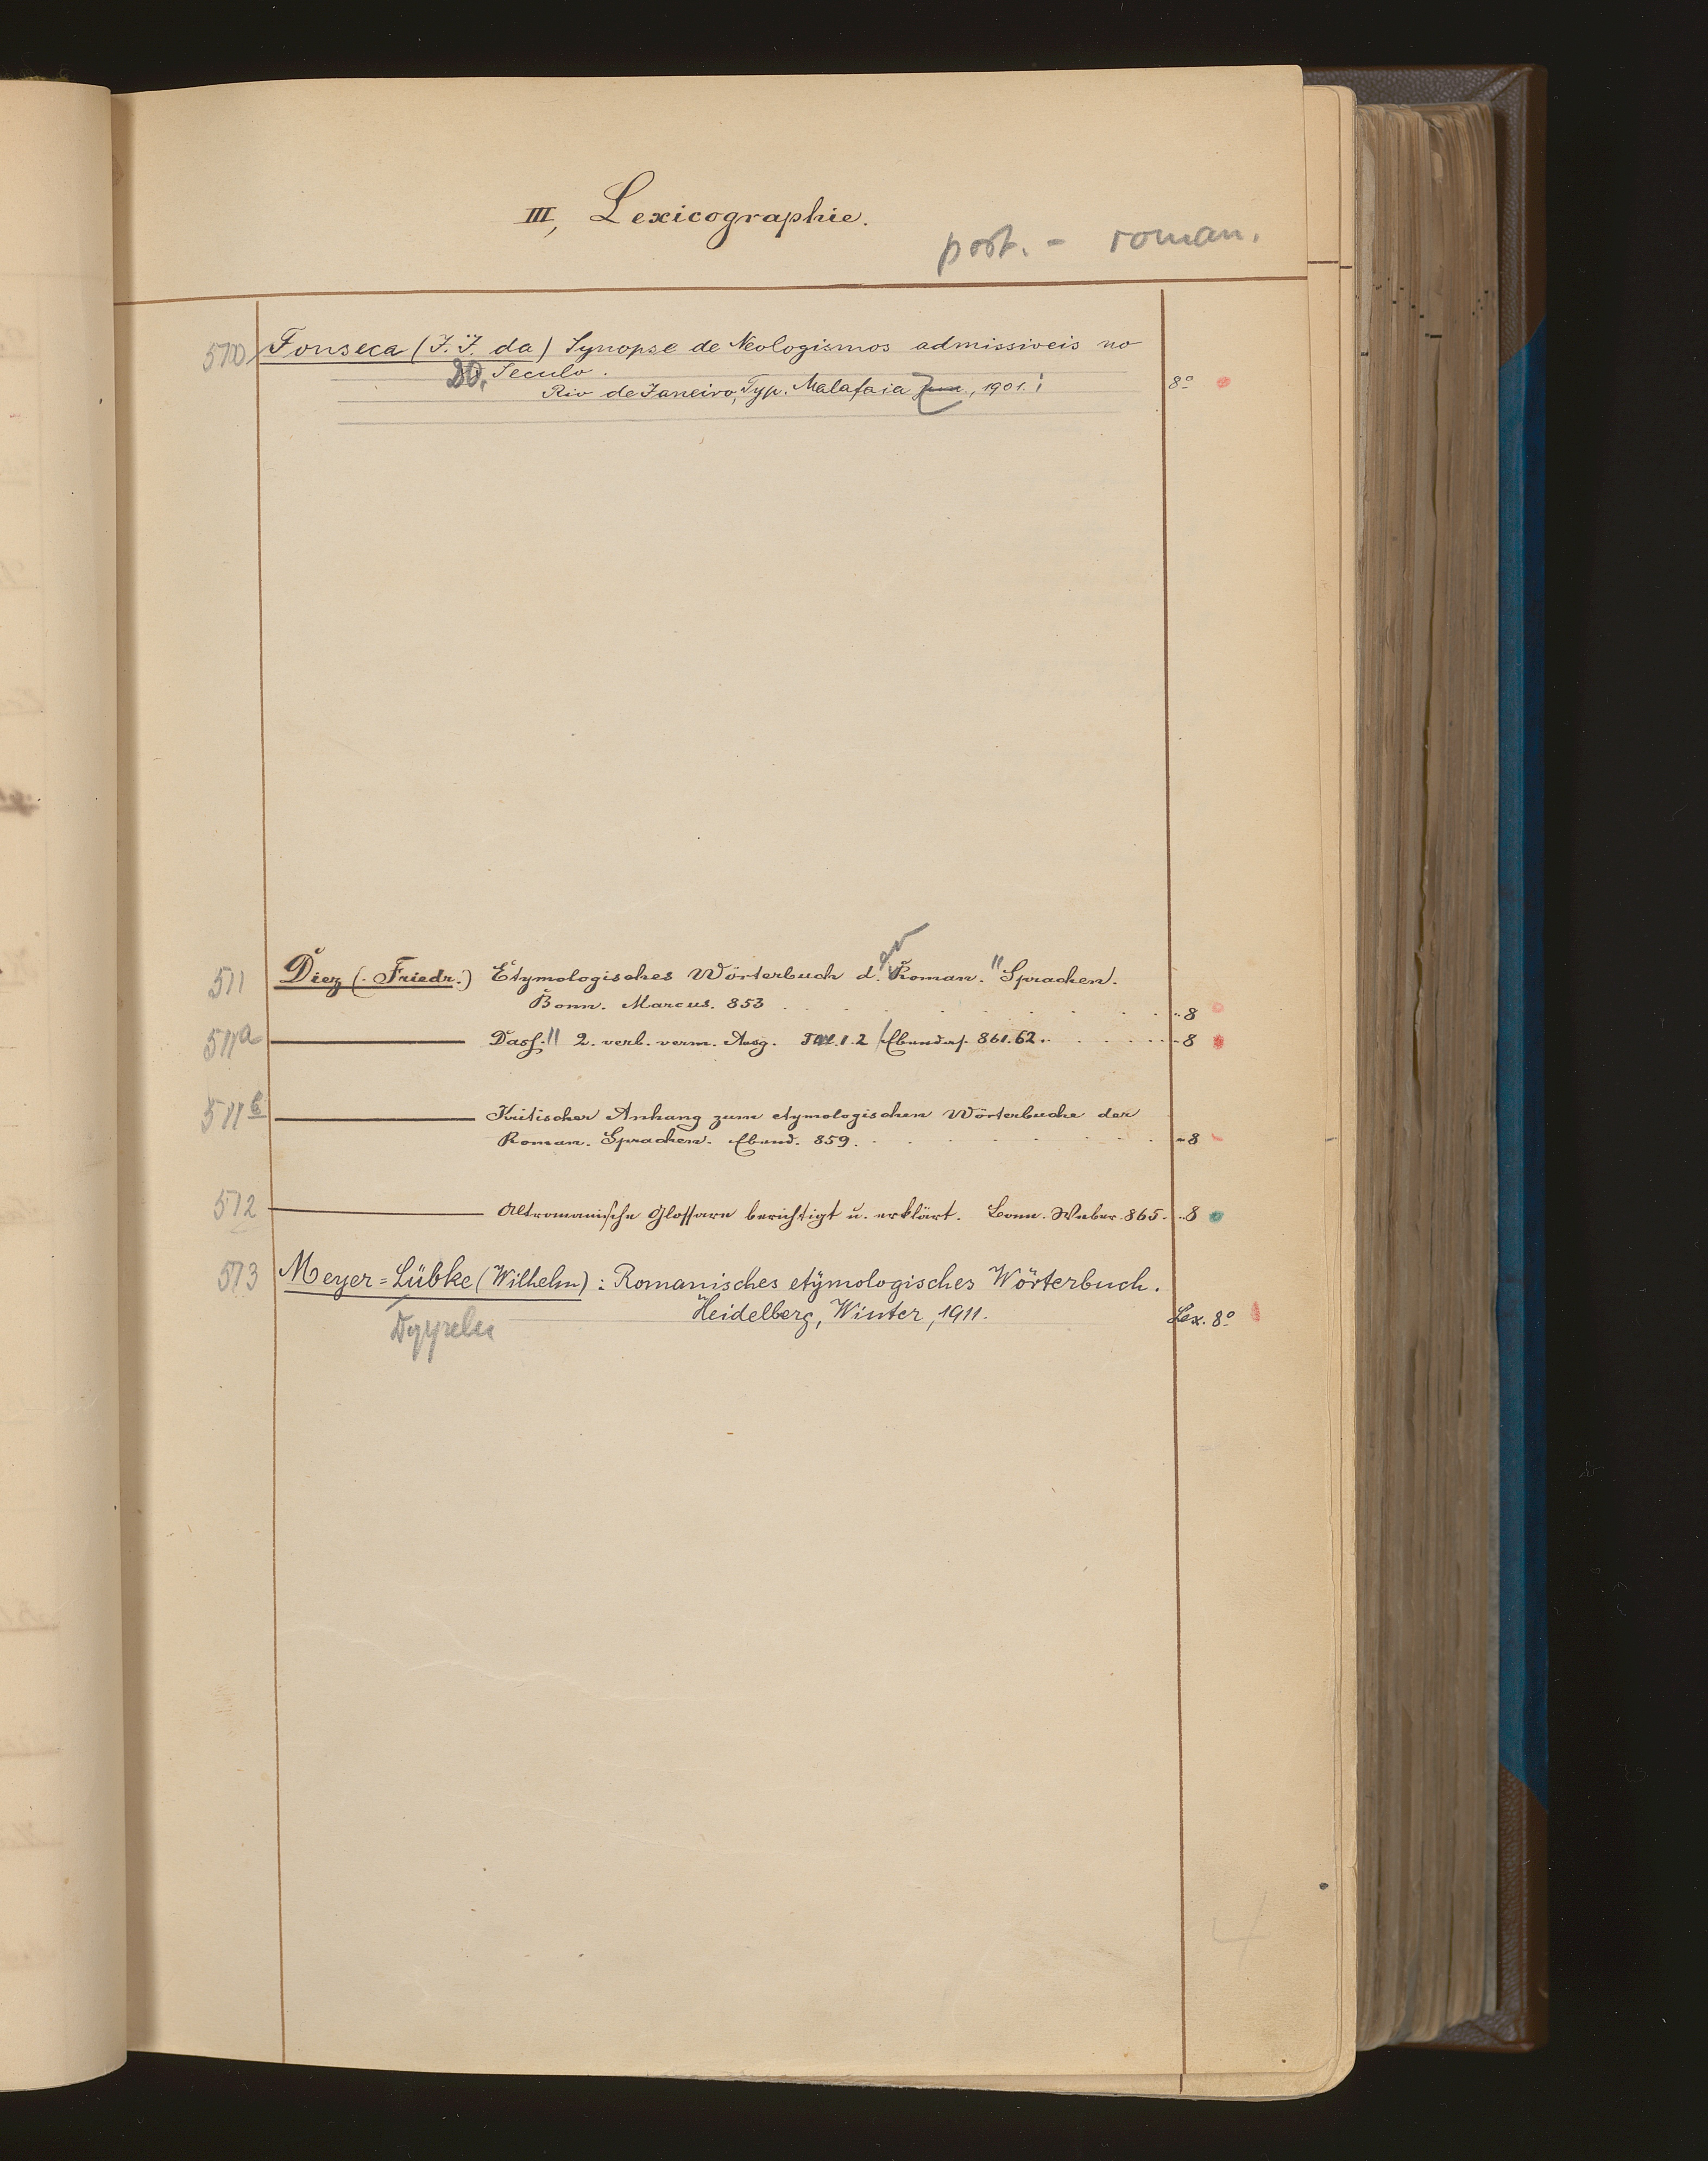 III, Lexicographie.
port. - roman.
570 Fonseca (J. J. da) Synopse de Neologismos admissiveis no
20. Seculo.
Rio de Janeiro, Typ. Malafaia, 1901. 8°
511 Diez (Friedr.) Etymologisches Wörterbuch d. Roman. Sprachen.
Bonn. Marcus. 853 8
511a Dass. 2. verb. verm. Ausg. 1.2 Ebendas. 861.62. 8
511b Kritischer Anhang zum etymologischen Wörterbuche der
Roman. Sprachen. Ebend. 859. 8
512 Altromanische Glossare berichtigt u. erklärt. Bonn. Weber. 865. 8
573 Meyer=Lübke (Wilhelm): Romanisches etymologisches Wörterbuch.
Heidelberg, Winter, 1911. Lex. 8°
4